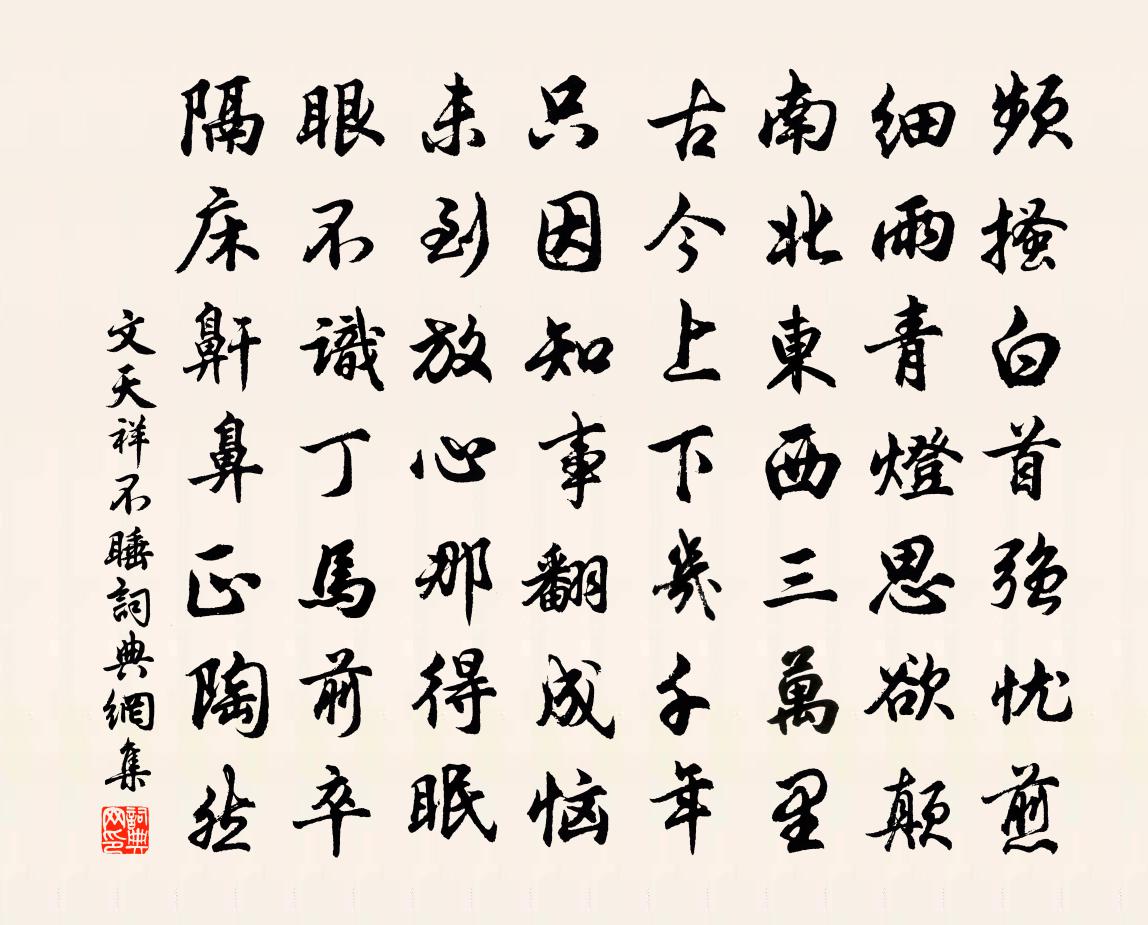 频搔白首强忧煎
细雨青燈思欲颠
南北東西三萬里
古今上下幾千年
只因知事翻成恼
未到放心那得眠
眼不識丁馬前卒
隔床鼾鼻正陶然
文天祥不睡詞典網集
詞典网印